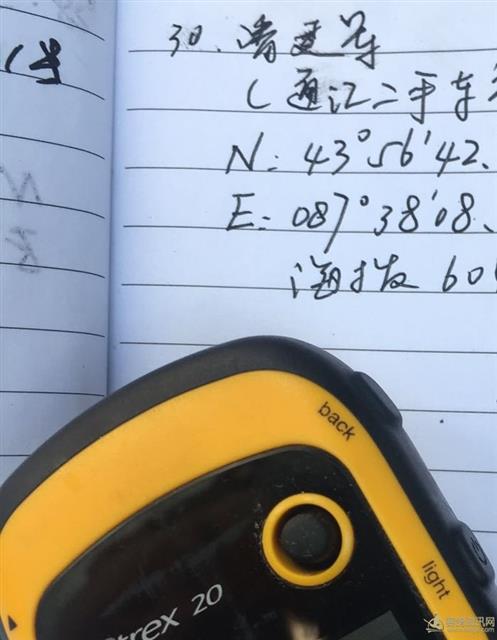 30.
(通江二手车
N: 43°56'42.
E: 087°38'08.
海拔 60
back
light
trex 20